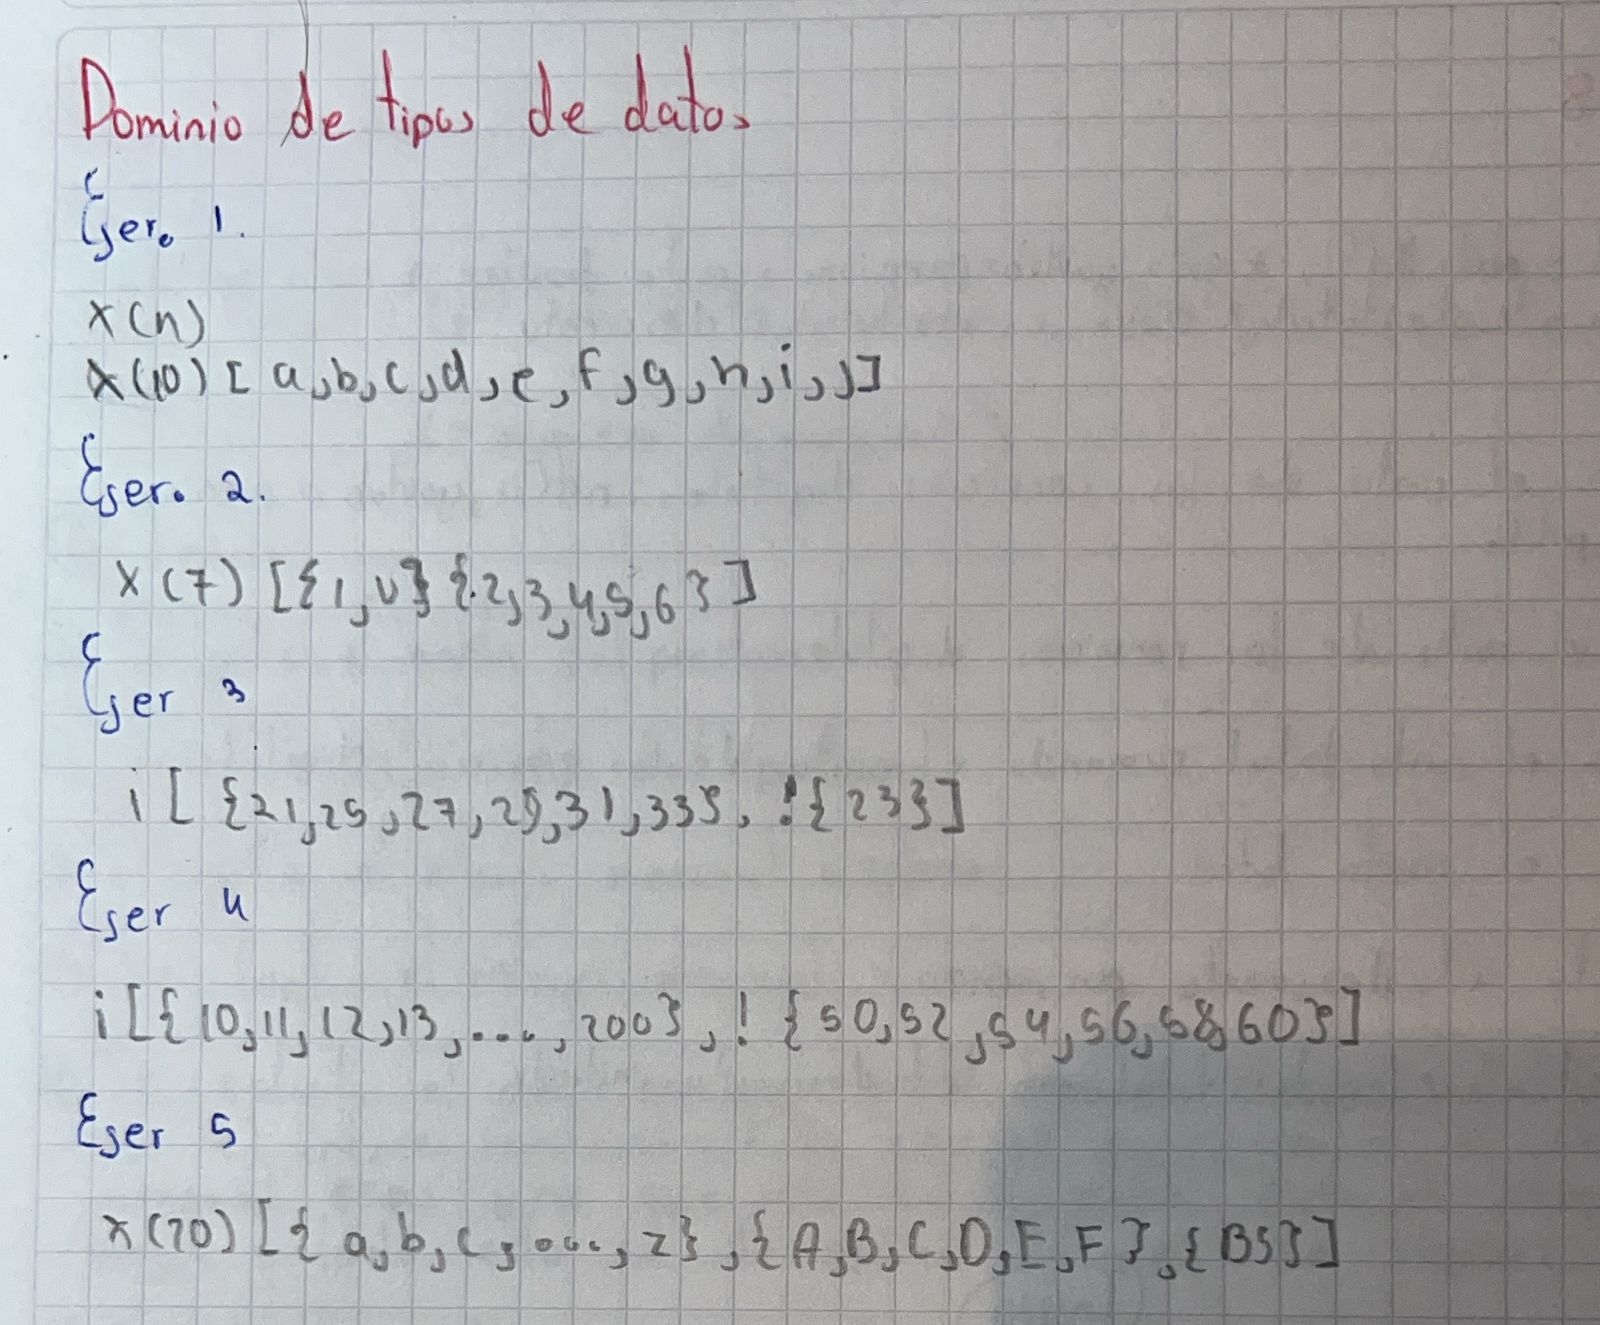 Dominio de tipos de datos
Ejer. 1.
x(n)
x(10) [ a,b,c,d,e,f,g,h,i,j]
Ejer. 2.
x (7) [{1,0} {2,3,4,5,6}]
Ejer 3
i [ {21,25,27,29,31,33}, !{23}]
Ejer 4
i [{10,11,12,13,...,200}, ! {50,52,54,56,58,60}]
Ejer 5
x(20) [{ a,b,c,....,z},{A,B,C,D,E,F},{BS}]